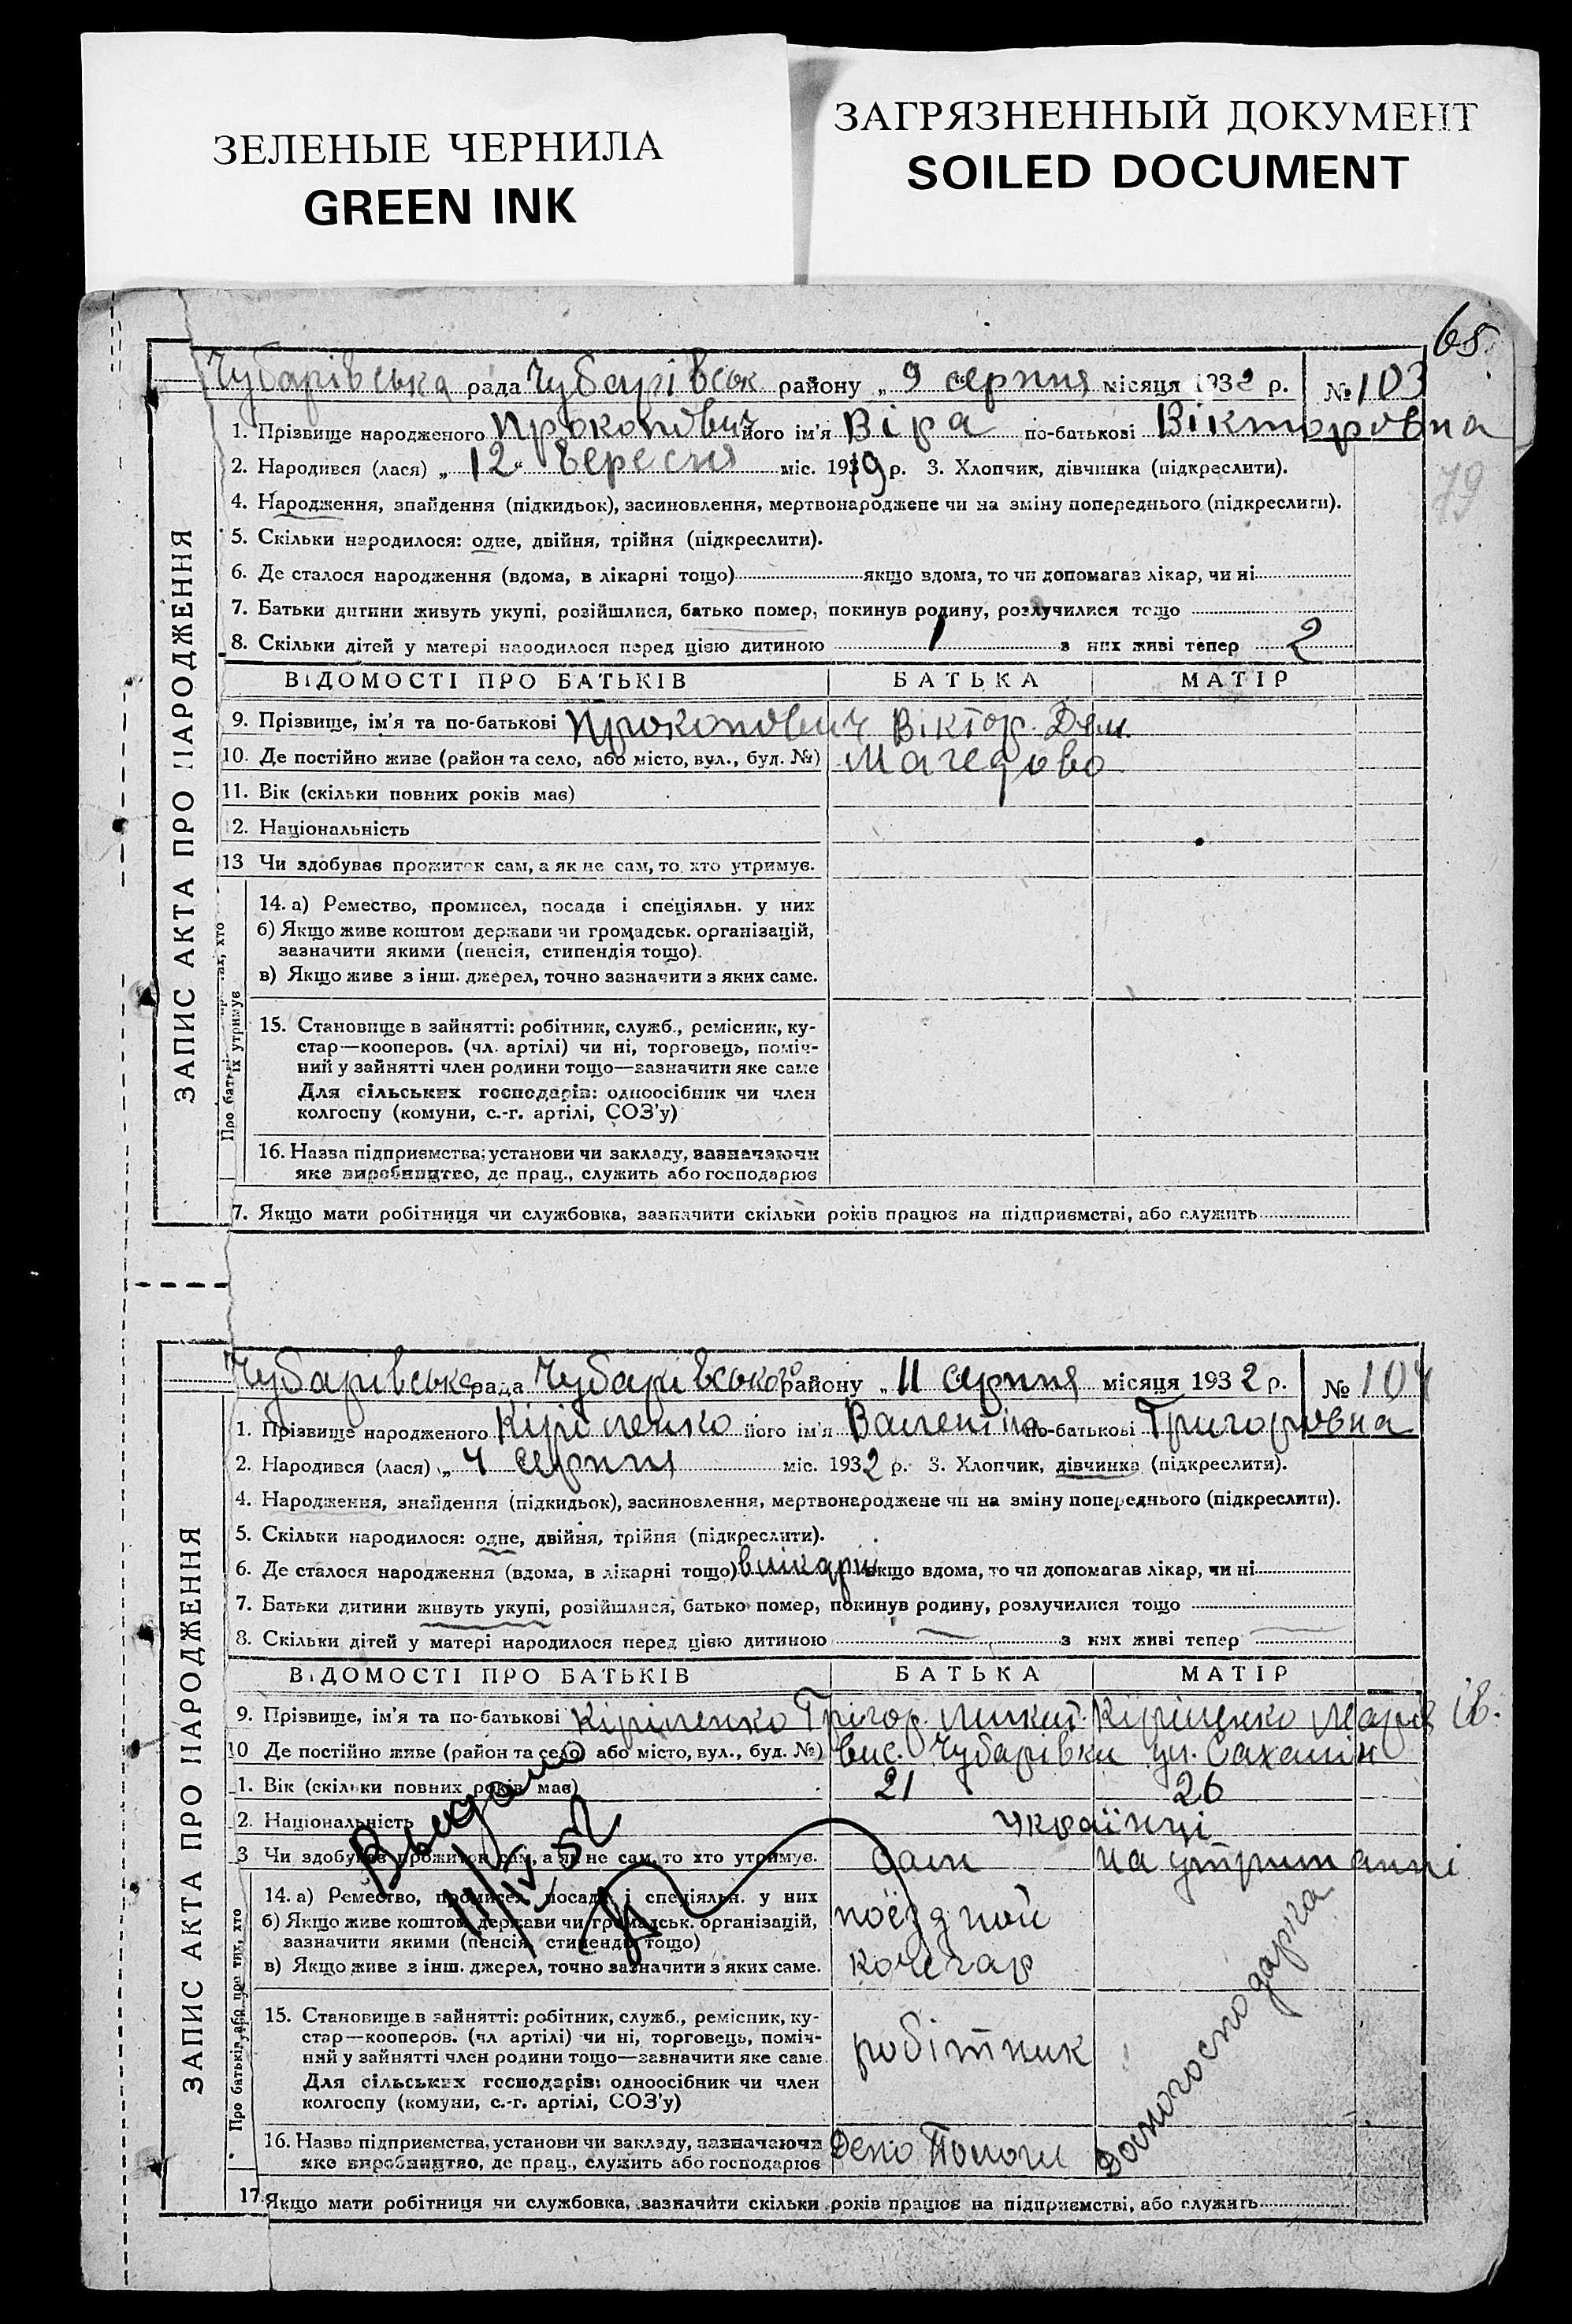 ЗЕЛЕНЫЕ ЧЕРНИЛА
GREEN INK
ЗАГРЯЗНЕННЫЙ ДОКУМЕНТ
SOILED DOCUMENT
65.
79
ЗАПИС АКТА ПРО НАРОДЖЕННЯ
Чубарівська рада Чубарівськ району „ 9 серпня місяця 1932 р. № 103
1. Прізвище народженого Прокопович його ім'я Віра по-батькові Вікторовна
2. Народився (лася) „ 12 “ вересня міс. 1919 р. 3. Хлопчик, дівчинка (підкреслити).
4. Народження, знайдення (підкидьок), засиновлення, мертвонароджене чи на зміну попереднього (підкреслити).
5. Скільки народилося: одне, двійня, трійня (підкреслити).
6. Де сталося народження (вдома, в лікарні тощо) якщо вдома, то чи допомагав лікар, чи ні
7. Батьки дитини живуть укупі, розійшлися, батько помер, покинув родину, розлучилися тощо
8. Скільки дітей у матері народилося перед цією дитиною 1 з них живі тепер 2
ВІДОМОСТІ ПРО БАТЬКІВ БАТЬКА МАТІР
9. Прізвище, ім'я та по-батькові Прокопович Віктор. Дем.
10. Де постійно живе (район та село, або місто, вул., буд. №) Магедово
11. Вік (скільки повних років має)
12. Національність
13 Чи здобуває прожиток сам, а як не сам, то хто утримує.
Про батьків їх утримує
14. а) Ремество, промисел, посада і спеціяльн. у них
б) Якщо живе коштом держави чи громадськ. організацій,
зазначити якими (пенсія, стипендія тощо).
в) Якщо живе з інш. джерел, точно зазначити з яких саме.
15. Становище в зайнятті: робітник, служб., ремісник, ку-
стар—кооперов. (чл. артілі) чи ні, торговець, поміч-
ний у зайнятті член родини тощо—зазначити яке саме
Для сільських господарів: одноосібник чи член
колгоспу (комуни, с.-г. артілі, СОЗ'у)
16. Назва підприємства, установи чи закладу, зазначаючи
яке виробництво, де прац., служить або господарює
7. Якщо мати робітниця чи службовка, зазначити скільки років працює на підприємстві, або служить
ЗАПИС АКТА ПРО НАРОДЖЕННЯ
Чубарівська рада Чубарівського району „ 11 серпня місяця 1932 р. № 104
1. Прізвище народженого Кіріленко його ім'я Валентіна по-батькові Григоровна
2. Народився (лася) „ 4 серпня міс. 1932 р. 3. Хлопчик, дівчинка (підкреслити).
4. Народження, знайдення (підкидьок), засиновлення, мертвонароджене чи на зміну попереднього (підкреслити).
5. Скільки народилося: одне, двійня, трійня (підкреслити).
6. Де сталося народження (вдома, в лікарні тощо) в лікарні якщо вдома, то чи допомагав лікар, чи ні
7. Батьки дитини живуть укупі, розійшлися, батько помер, покинув родину, розлучилися тощо
8. Скільки дітей у матері народилося перед цією дитиною — з них живі тепер —
ВІДОМОСТІ ПРО БАТЬКІВ БАТЬКА МАТІР
9. Прізвище, ім'я та по-батькові Кіріленко Грігор. Микит. Кіріленко Марія Ів.
10 Де постійно живе (район та село, або місто, вул., буд. №) вис. Чубарівки ул.
1. Вік (скільки повних років має) 21 26
2. Національність українці
3 Чи здобуває прожиток сам, а як не сам, то хто утримує. сам на утриманні
Про батьків, або про тих, хто їх утримує
14. а) Ремество, промисел, посада і спеціяльн. у них поёздной
б) Якщо живе коштом держави чи громадськ. організацій,
зазначити якими (пенсія, стипендія тощо)
в) Якщо живе з інш. джерел, точно зазначити з яких саме. кочегар
Выдано
11/IV 52
15. Становище в зайнятті: робітник, служб., ремісник, ку-
стар—кооперов. (чл артілі) чи ні, торговець, поміч-
ний у зайнятті член родини тощо—зазначити яке саме робітник
Для сільських господарів: одноосібник чи член
колгоспу (комуни, с.-г. артілі, СОЗ'у)
домогосподарка
16. Назва підприємства, установи чи закладу, зазначаючи Депо Пологи
яке виробництво, де прац., служить або господарює
17. Якщо мати робітниця чи службовка, зазначити скільки років працює на підприємстві, або служить